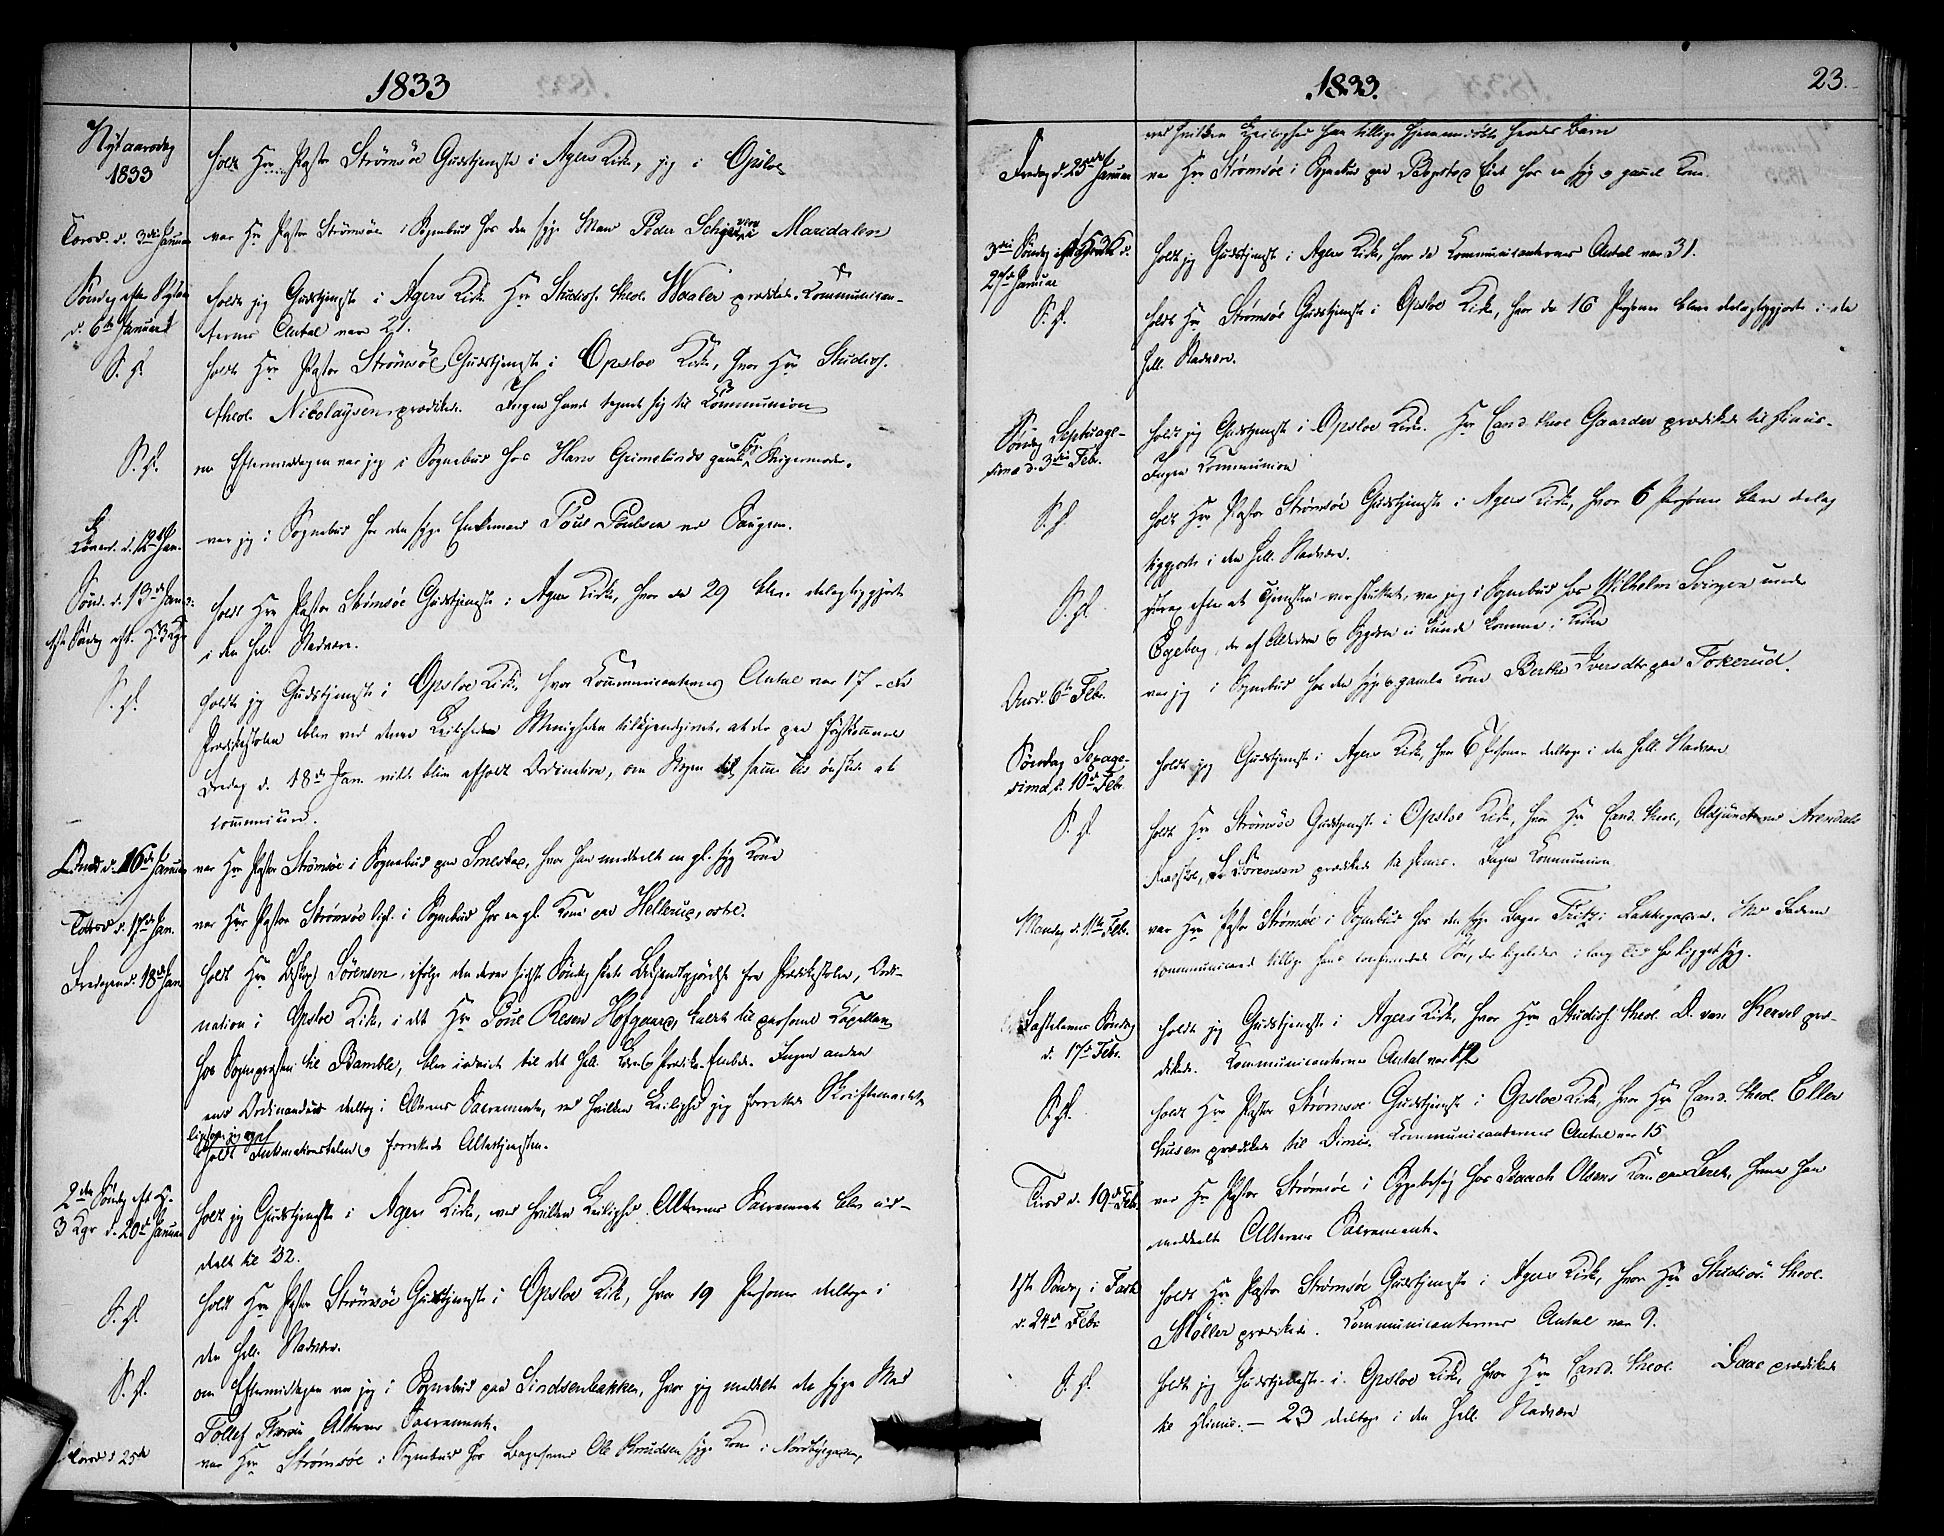 1833
Nytaarsdag
1833
holdt Hr Pastor Strömsöe Gudstjeneste i Agers Kirke, jeg i Opsloe
Torsd. d. 3die Januar
var Hr Pastor Strömsöe i Sognebud hos den syge Mand Peder i Maridalen
Söndag efter Nytaar
d. 6te Januar
holdt jeg Gudstjeneste i Agers Kirke. Hr Studios. theol. Waaler prædikede. Communican-
ternes Antal var 21.
S. D.
holdt Hr Pastor Strömsöe Gudstjeneste i Opsloe Kirke, hvor Hr Studios.
theol. Nicolaysen prædikede. Ingen havde tegnet sig til Communion
S. D.
om Eftermiddagen var jeg i Sognebud hos Hans Grimelunds gamle Svigermoder.
Löverd. d. 12te Jan.
var jeg i Sognebud hos den syge Enkemand Poul Poulsen ved Saugen.
Sönd. d. 13de Jan.
1ste Söndag eft. H. 3 Kgr
holdt Hr Pastor Strömsöe Gudstjeneste i Agers Kirke, hvor der 29 blev delagtiggjorte
i den hel. Nadvere.
S. D.
holdt jeg Gudstjeneste i Opsloe Kirke, hvor Communicanternes Antal var 17 - fra
Prædikestolen blev ved denne Leilighed Menigheden tilkjendegivet, at der paa förstkommende
Fredag d. 18de Jan. vilde blive afholdt Ordination, om Nogen til samme Tid önskede at
communicere.
Onsd. d. 16de Januar
var Hr Pastor Strömsöe i Sognebud paa Smestad, hvor han meddelte en gl. syg Kone
Torsd. d. 17de Jan.
var Hr Pastor Strömsöe ligel. i Sognebud hos en gl. Kone paa Hellerud, östre.
Fredagen d. 18de Jan.
holdt Hr Biskop Sörensen, ifölge den derom sidste Söndag skete Bekjendtgjörelse fra Prædikestolen, Ordi-
nation i Opsloe Kirke, i det Hr Poul Resen Hofgaard, kaldet til personel Kapellan
hos Sognepræsten til Bamble, blev indviet til det hell. Lære- og Prædike-Embede. Ingen anden
end Ordinandus deeltog i Alterens Sacramente, ved hvilken Leilighed jeg forrettede Skriftemaalet,
ligesom jeg ogsaa
holdt Intimationstalen og forrettede Altertjenesten.
2den Söndag eft. H.
3 Kgr d. 20de Januar
holdt jeg Gudstjeneste i Agers Kirke, ved hvilken Leilighed Alterens Sacramente blev ud-
delt til 32.
S. D.
holdt Hr Pastor Strömsöe Gudstjeneste i Opsloe Kirke, hvor 19 Personer deeltoge i
den hell. Nadvere.
S. D.
om Eftermiddagen var jeg i Sognebud paa Sindsenbakken, hvor jeg meddelte den syge Mand
Tollef Alterens Sacramente.
var Hr Strömsöe i Sognebud hos Ole Knudsens syge Kone i
1833.
23.
ved hvilken Leilighed han tillige hjemmedöbte hendes Barn
Fredag d. 25de Januar
var Hr Strömsöe i Sognebud paa Bogstad Eier hos en syg og gammel Kone.
3die Söndag eft. H. 3 K. d.
27de Januar
holdt jeg Gudstjeneste i Agers Kirke, hvor da Communicanternes Antal var 31.
S. D.
holdt Hr Strömsöe Gudstjeneste i Opsloe Kirke, hvor da 16 Personer bleve delagtiggjorte i den
hell. Nadvere.
Söndag Septuage-
sima d. 3die Feb.
holdt jeg Gudstjeneste i Opsloe Kirke. Hr Cand. theol. Gaarder prædikede til Dimis.
Ingen Communion
S. D.
holdt Hr Pastor Strömsöe Gudstjeneste i Agers Kirke, hvor 6 Personer bleve delag
tiggjorte i den hell. Nadvere.
S. D.
strax efter at Tjenesten var sluttet, var jeg i Sognebud hos Wilhelm Svingen under
Egeberg, der af Alderdom og Sygdom ei kunde komme i Kirken
Onsd. 6te Feb.
var jeg i Sognebud hos den syge og gamle Kone Berthe Iversdtr paa Tokerud.
Söndag Sexage-
sima, d. 10de Feb.
holdt jeg Gudstjeneste i Agers Kirke, hvor 6 Personer deeltoge i den hell. Nadvere
S. D.
holdt Hr Strömsöe Gudstjeneste i Opsloe Kirke, hvor Hr Cand. theol., Adjunct ved Arendals
Sörensen prædikede til Dimis. Ingen Communion
Mandag d. 11te Feb.
var Hr Pastor Strömsöe i Sognebud hos den syge Bager Fritz i Lakkegaden. Med Faderen
communicerede tillige hans confirmerede Sön, der ligeledes i lang Tid har ligget syg.
Fastelavns Söndag
d. 17de Febr.
holdt jeg Gudstjeneste i Agers Kirke, hvor Hr Studios. theol. D. von Krevel præ-
dikede. Communicanternes Antal var 12
S. D.
holdt Hr Pastor Strömsöe Gudstjeneste i Opsloe Kirke, hvor Hr Cand. theol. Eller
husen prædikede til Dimis. Communicanternes Antal var 15
Tirsd d. 19de Feb.
var Hr Pastor Strömsöe i Sygebesög hos Isaach Olsens Kone paa Leret, hvem han
meddelte Alterens Sacramente.
1ste Söndag i Faste
d. 24de Feb.
holdt Hr Pastor Strömsöe Gudstjeneste i Agers Kirke, hvor Hr Studios. theol.
Möller prædikede. Communicanternes Antal var 9.
S. D.
holdt jeg Gudstjeneste i Opsloe Kirke, hvor Hr Cand. theol. Daae prædikede
til Dimis. — 23 deeltoge i den hell. Nadvere